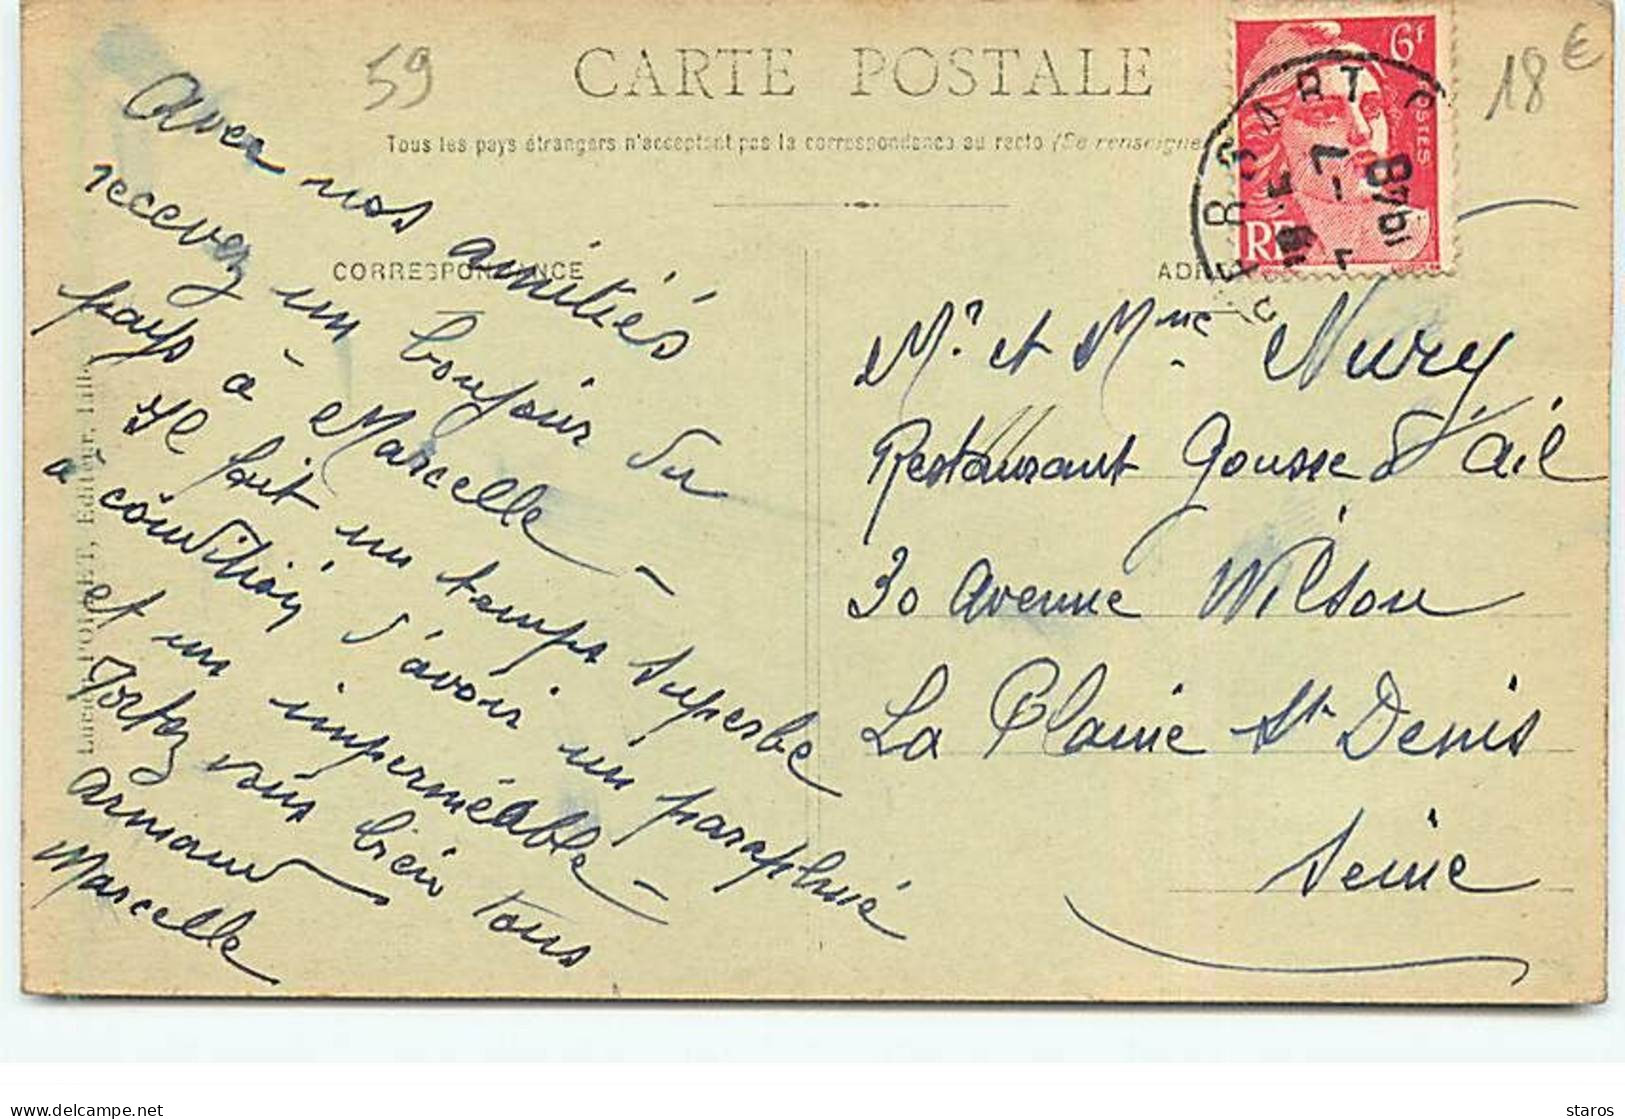 59
CARTE POSTALE
18 €
6f
POSTES
RF
1948
Tous les pays étrangers n'acceptent pas la correspondance au recto (Se renseigne
CORRESPONDANCE
ADR
Avec nos amitiés
recevez un bonjour du
pays à Marcelle -
Il fait un temps superbe
à condition d'avoir un parapluie
et un imperméable -
Portez vous bien tous
Armand
Marcelle
Mr et Mme Nury
Restaurant Gousse d'ail
30 Avenue Wilson
La Plaine St Denis
Seine
PORET, Editeur, Lille
delcampe.net
staros